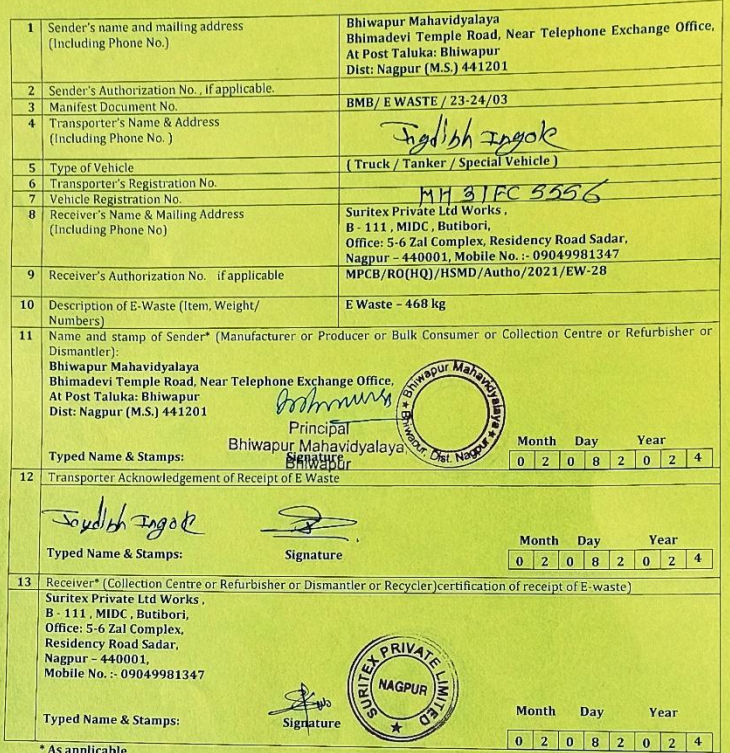 1 Sender's name and mailing address
(Including Phone No.)
Bhiwapur Mahavidyalaya
Bhimadevi Temple Road, Near Telephone Exchange Office,
At Post Taluka: Bhiwapur
Dist: Nagpur (M.S.) 441201
2 Sender's Authorization No. , if applicable.
3 Manifest Document No.
BMB/ E WASTE / 23-24/03
4 Transporter's Name & Address
(Including Phone No. )
Ingole
5 Type of Vehicle
( Truck / Tanker / Special Vehicle )
6 Transporter's Registration No.
7 Vehicle Registration No.
MH 31 FC 5556
8 Receiver's Name & Mailing Address
(Including Phone No)
Suritex Private Ltd Works ,
B - 111 , MIDC , Butibori,
Office: 5-6 Zal Complex, Residency Road Sadar,
Nagpur – 440001, Mobile No. :- 09049981347
9 Receiver's Authorization No. if applicable
MPCB/RO(HQ)/HSMD/Autho/2021/EW-28
10 Description of E-Waste (Item, Weight/
Numbers)
E Waste – 468 kg
11 Name and stamp of Sender* (Manufacturer or Producer or Bulk Consumer or Collection Centre or Refurbisher or
Dismantler):
Bhiwapur Mahavidyalaya
Bhimadevi Temple Road, Near Telephone Exchange Office,
At Post Taluka: Bhiwapur
Dist: Nagpur (M.S.) 441201
Principal
Bhiwapur Mahavidyalaya
Bhiwapur
★ Bhiwapur Mahavidyalaya ★ Bhiwapur, Dist. Nagpur
Typed Name & Stamps: Signature
Month Day Year
0 2 0 8 2 0 2 4
12 Transporter Acknowledgement of Receipt of E Waste
Ingole
Typed Name & Stamps: Signature
Month Day Year
0 2 0 8 2 0 2 4
13 Receiver* (Collection Centre or Refurbisher or Dismantler or Recycler)certification of receipt of E-waste)
Suritex Private Ltd Works ,
B - 111 , MIDC , Butibori,
Office: 5-6 Zal Complex,
Residency Road Sadar,
Nagpur – 440001,
Mobile No. :- 09049981347
SURITEX PRIVATE LIMITED ★
NAGPUR
Typed Name & Stamps: Signature
Month Day Year
0 2 0 8 2 0 2 4
* As applicable